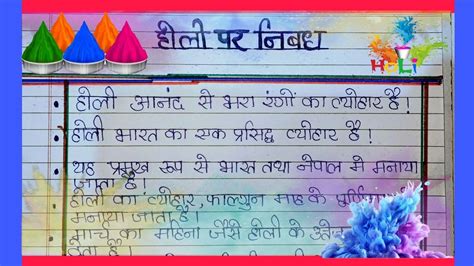 होली पर निबंध
HOLi
• होली आनंद से भरा रंगों का त्योहार है!
• होली भारत का एक प्रसिद्ध त्योहार है!
• यह प्रमुख रूप से भारत तथा नेपाल मे मनाया
जाता है!
होली का त्योहार, फाल्गुन माह के पूर्णिमा
मनाया जाता है।
मार्च का महिना जैसे होली के